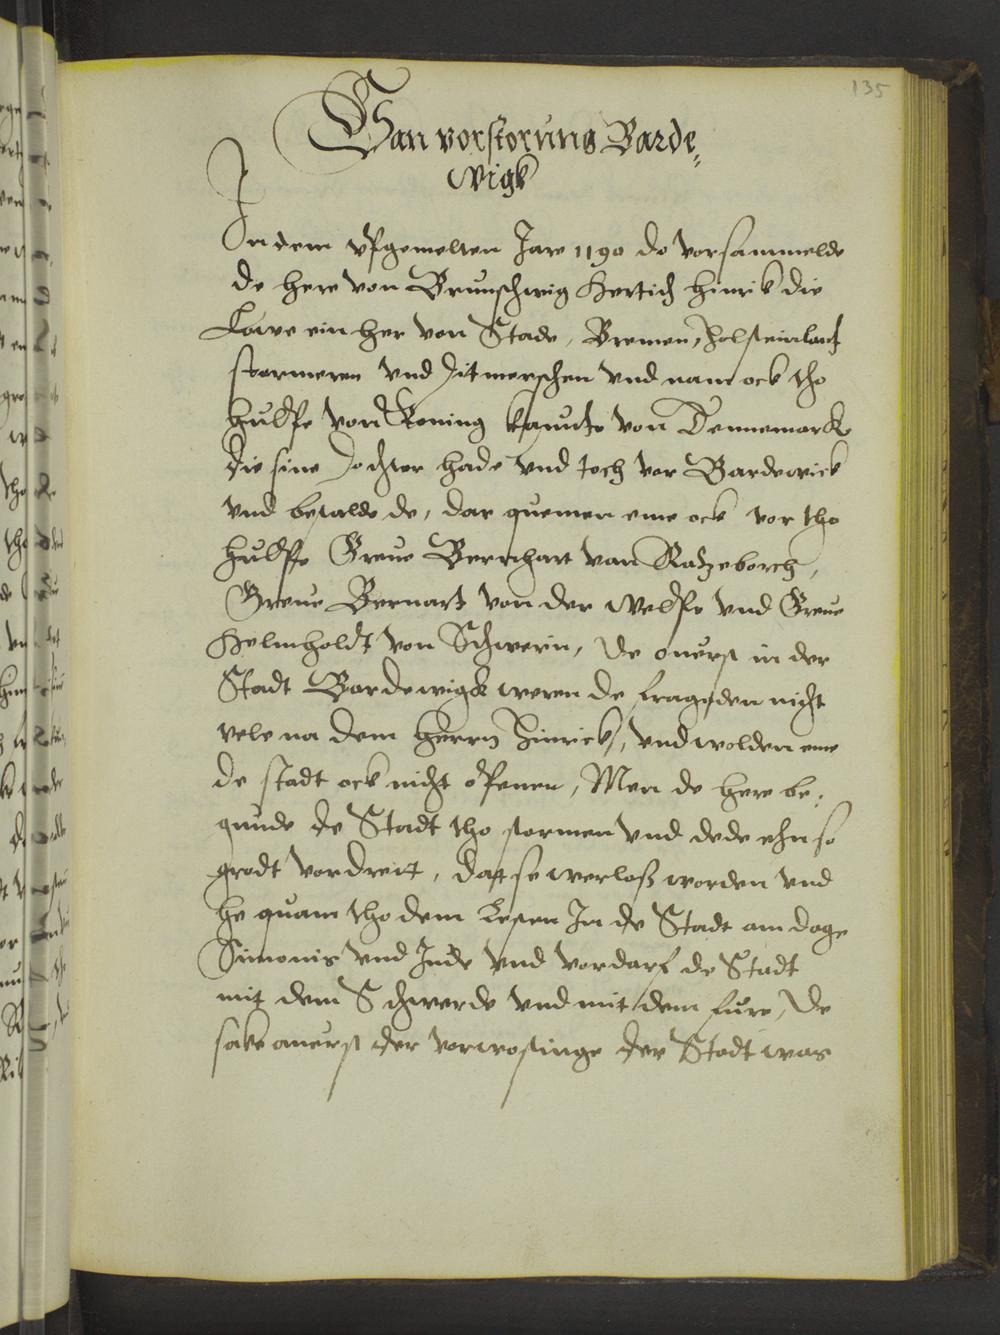 135
Van vorstorung Barde⸗
wigk
In dem vpgemelten Jare 1190 do vorsammelde
de here von Brunschwig Hertich Hinrik die
Lauwe ein her von Stade, Bremen, Holsteinlant
stormeren vnd Ditmerschen vnd nam ock tho
hulffe von Koning Kanute von Dennemarck
die sine dochter hade vnd toch vor Bardewick
vnd belede de, dar quemen eme ock vor tho
hulffe Greue Bernhart van Ratzeborch,
Greue Bernart von der Welpe vnd Greue
Helmholdt von Schwerin, De ouerst in der
Stadt Bardewigk weren de frageden nicht
vele na dem herrn Hinrick, vnd wolden eme
de stadt ock nicht openen, Men de here be⸗
gunde de Stadt tho stormen vnd dede ehn so
grodt vordreit, dat se werloß worden vnd
he quam tho dem lesten In de Stadt am dage
Simonis vnd Jude vnd vordarf de Stadt
mit dem Schwerde vnd mit dem fure, De
sake auerst der vorwostinge der Stadt was